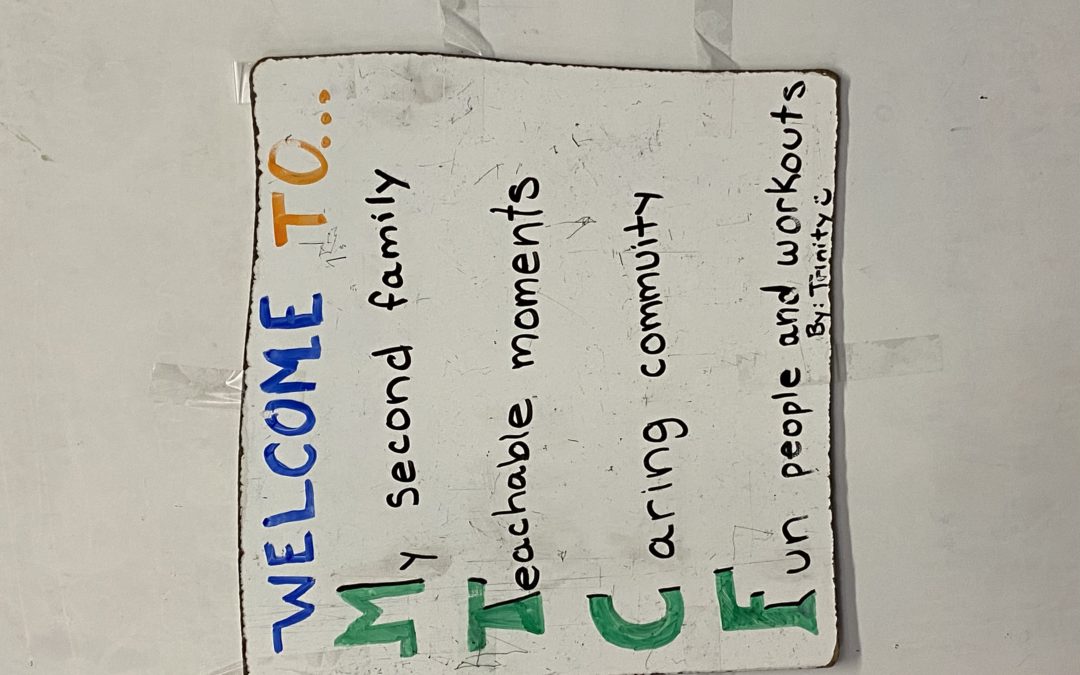 WELCOME TO...
My second family
Teachable moments
Caring commuity
Fun people and workouts
By: Trinity